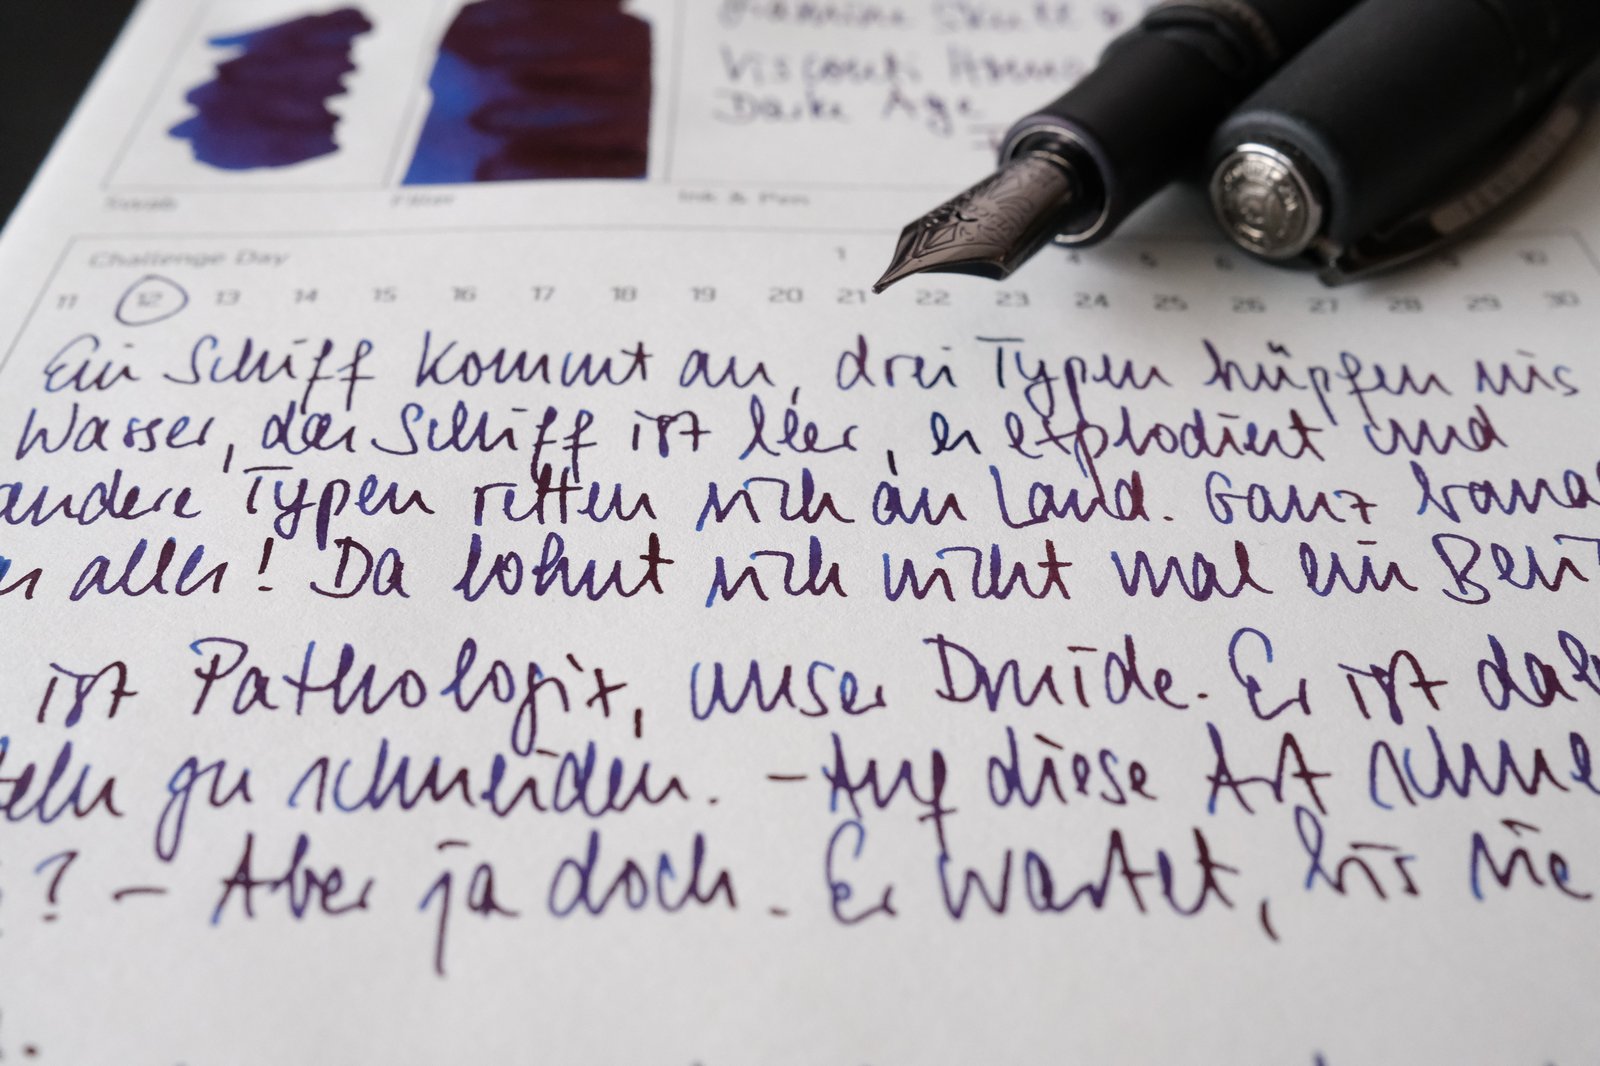 Visconti Homo
Dark Age
Swab
Ink & Pen
Challenge Day 1 4 5 6 9 10
11 12 13 14 15 16 17 18 19 20 21 22 23 24 25 26 27 28 29 30
Ein Schiff kommt an, drei Typen hüpfen ins
Wasser, das Schiff ist leer, es explodiert und
andere Typen retten sich an Land. Ganz
alles! Da lohnt sich nicht mal ein
ist Pathologix, unser Druide. Er ist
zu schneiden. - Auf diese Art
? - Aber ja doch. Er wartet, bis sie